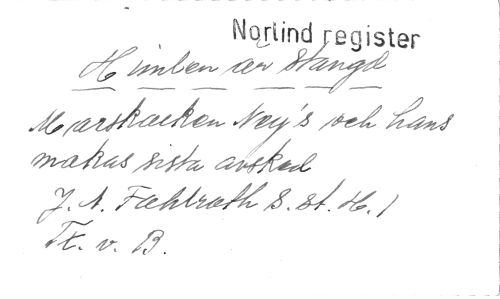 Norlind register
Himlen är stängd
Marskalken Ney's och hans
makas sista avsked
J. A. Fahlroth S. st. H. 1
Tx. v. B.